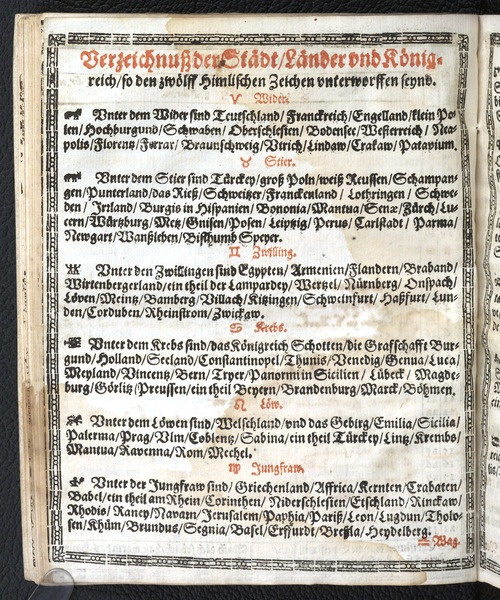 Verzeichnuß der Städt/Länder vnd König-
reich/so den zwölff Himlischen Zeichen vnterworffen seynd.
♈ Wider.
Vnter dem Wider sind Teutschland/Franckreich/Engelland/klein Po-
len/Hochburgund/Schwaben/Oberschlesien/Bodensee/Westerreich/Nea-
polis/Florentz/Ferrar/Braunschweig/Vtrich/Lindaw/Crakaw/Patavium.
♉ Stier.
Vnter dem Stier sind Türckey/groß Poln/weiß Reussen/Schampan-
gen/Punterland/das Rieß/Schweitzer/Franckenland/Lothringen/Schwe-
den/Irrland/Burgis in Hispanien/Bononia/Mantua/Sena/Zürch/Lu-
cern/Würtzburg/Metz/Gnisen/Posen/Leiptzig/Perus/Carlstadt/Parma/
Newgart/Wanßleben/Bisthumb Speyer.
♊ Zwilling.
Vnter den Zwillingen sind Egypten/Armenien/Flandern/Braband/
Wirtenbergerland/ein theil der Lampardey/Wertzel/Nürnberg/Onspach/
Löven/Meintz/Bamberg/Villach/Kitzingen/Schweinfurt/Haßfurt/Lun-
den/Corduben/Rheinstrom/Zwickaw.
♋ Krebs.
Vnter dem Krebs sind/das Königreich Schotten/die Graffschafft Bur-
gund/Holland/Seeland/Constantinopel/Thunis/Venedig/Genua/Luca/
Meyland/Vincentz/Bern/Tryer/Panorm in Sicilien/Lübeck/Magde-
burg/Görlitz/Preussen/ein theil Beyern/Brandenburg/Marck/Böhmen.
♌ Löw.
Vnter dem Löwen sind/Welschland/vnd das Gebirg/Emilia/Sicilia/
Palerma/Prag/Vlm/Coblentz/Sabina/ein theil Türckey/Lintz/Krembs/
Mantua/Ravenna/Rom/Mechel.
♍ Jungfraw.
Vnter der Jungfraw sind/Griechenland/Affrica/Kernten/Crabaten/
Babel/ein theil am Rhein/Corinthen/Niderschlesien/Etschland/Rinckaw/
Rhodis/Raney/Navarn/Jerusalem/Paphia/Pariß/Leon/Lugdun/Tholo-
sen/Khüm/Brundus/Segnia/Basel/Erffurdt/Breßla/Heydelberg.
♎ Wag.